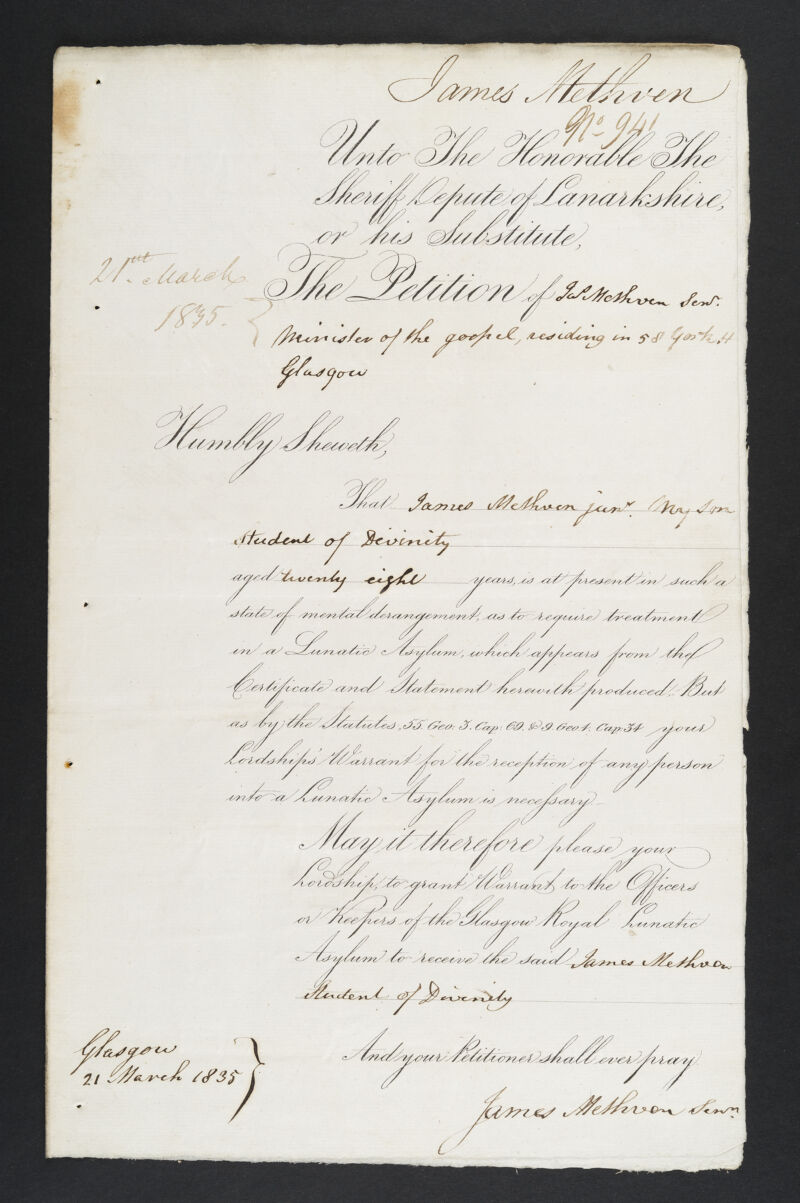 James Methven
No 941
Unto The Honorable The
Sheriff Depute of Lanarkshire,
or his Substitute,
21st March
1835.
The Petition of Jas Methven Senr.
Minister of the gospel, residing in 58 York St
Glasgow
Humbly Sheweth,
That James Methven junr. My Son
Student of Divinity
aged twenty eight years, is at present in such a
state of mental derangement, as to require treatment
in a Lunatic Asylum, which appears from the
Certificate and Statement herewith produced. But
as by the Statutes, 55. Geo. 3. Cap. 69. & 9. Geo 4. Cap. 34 your
Lordships' Warrant for the reception of any person
into a Lunatic Asylum is necessary
May it therefore please your
Lordship, to grant Warrant to the Officers
or Keepers of the Glasgow Royal Lunatic
Asylum to receive the said James Methven
Student of Divinity
Glasgow
21 March 1835
And your Petitioner shall ever pray
James Methven Senr